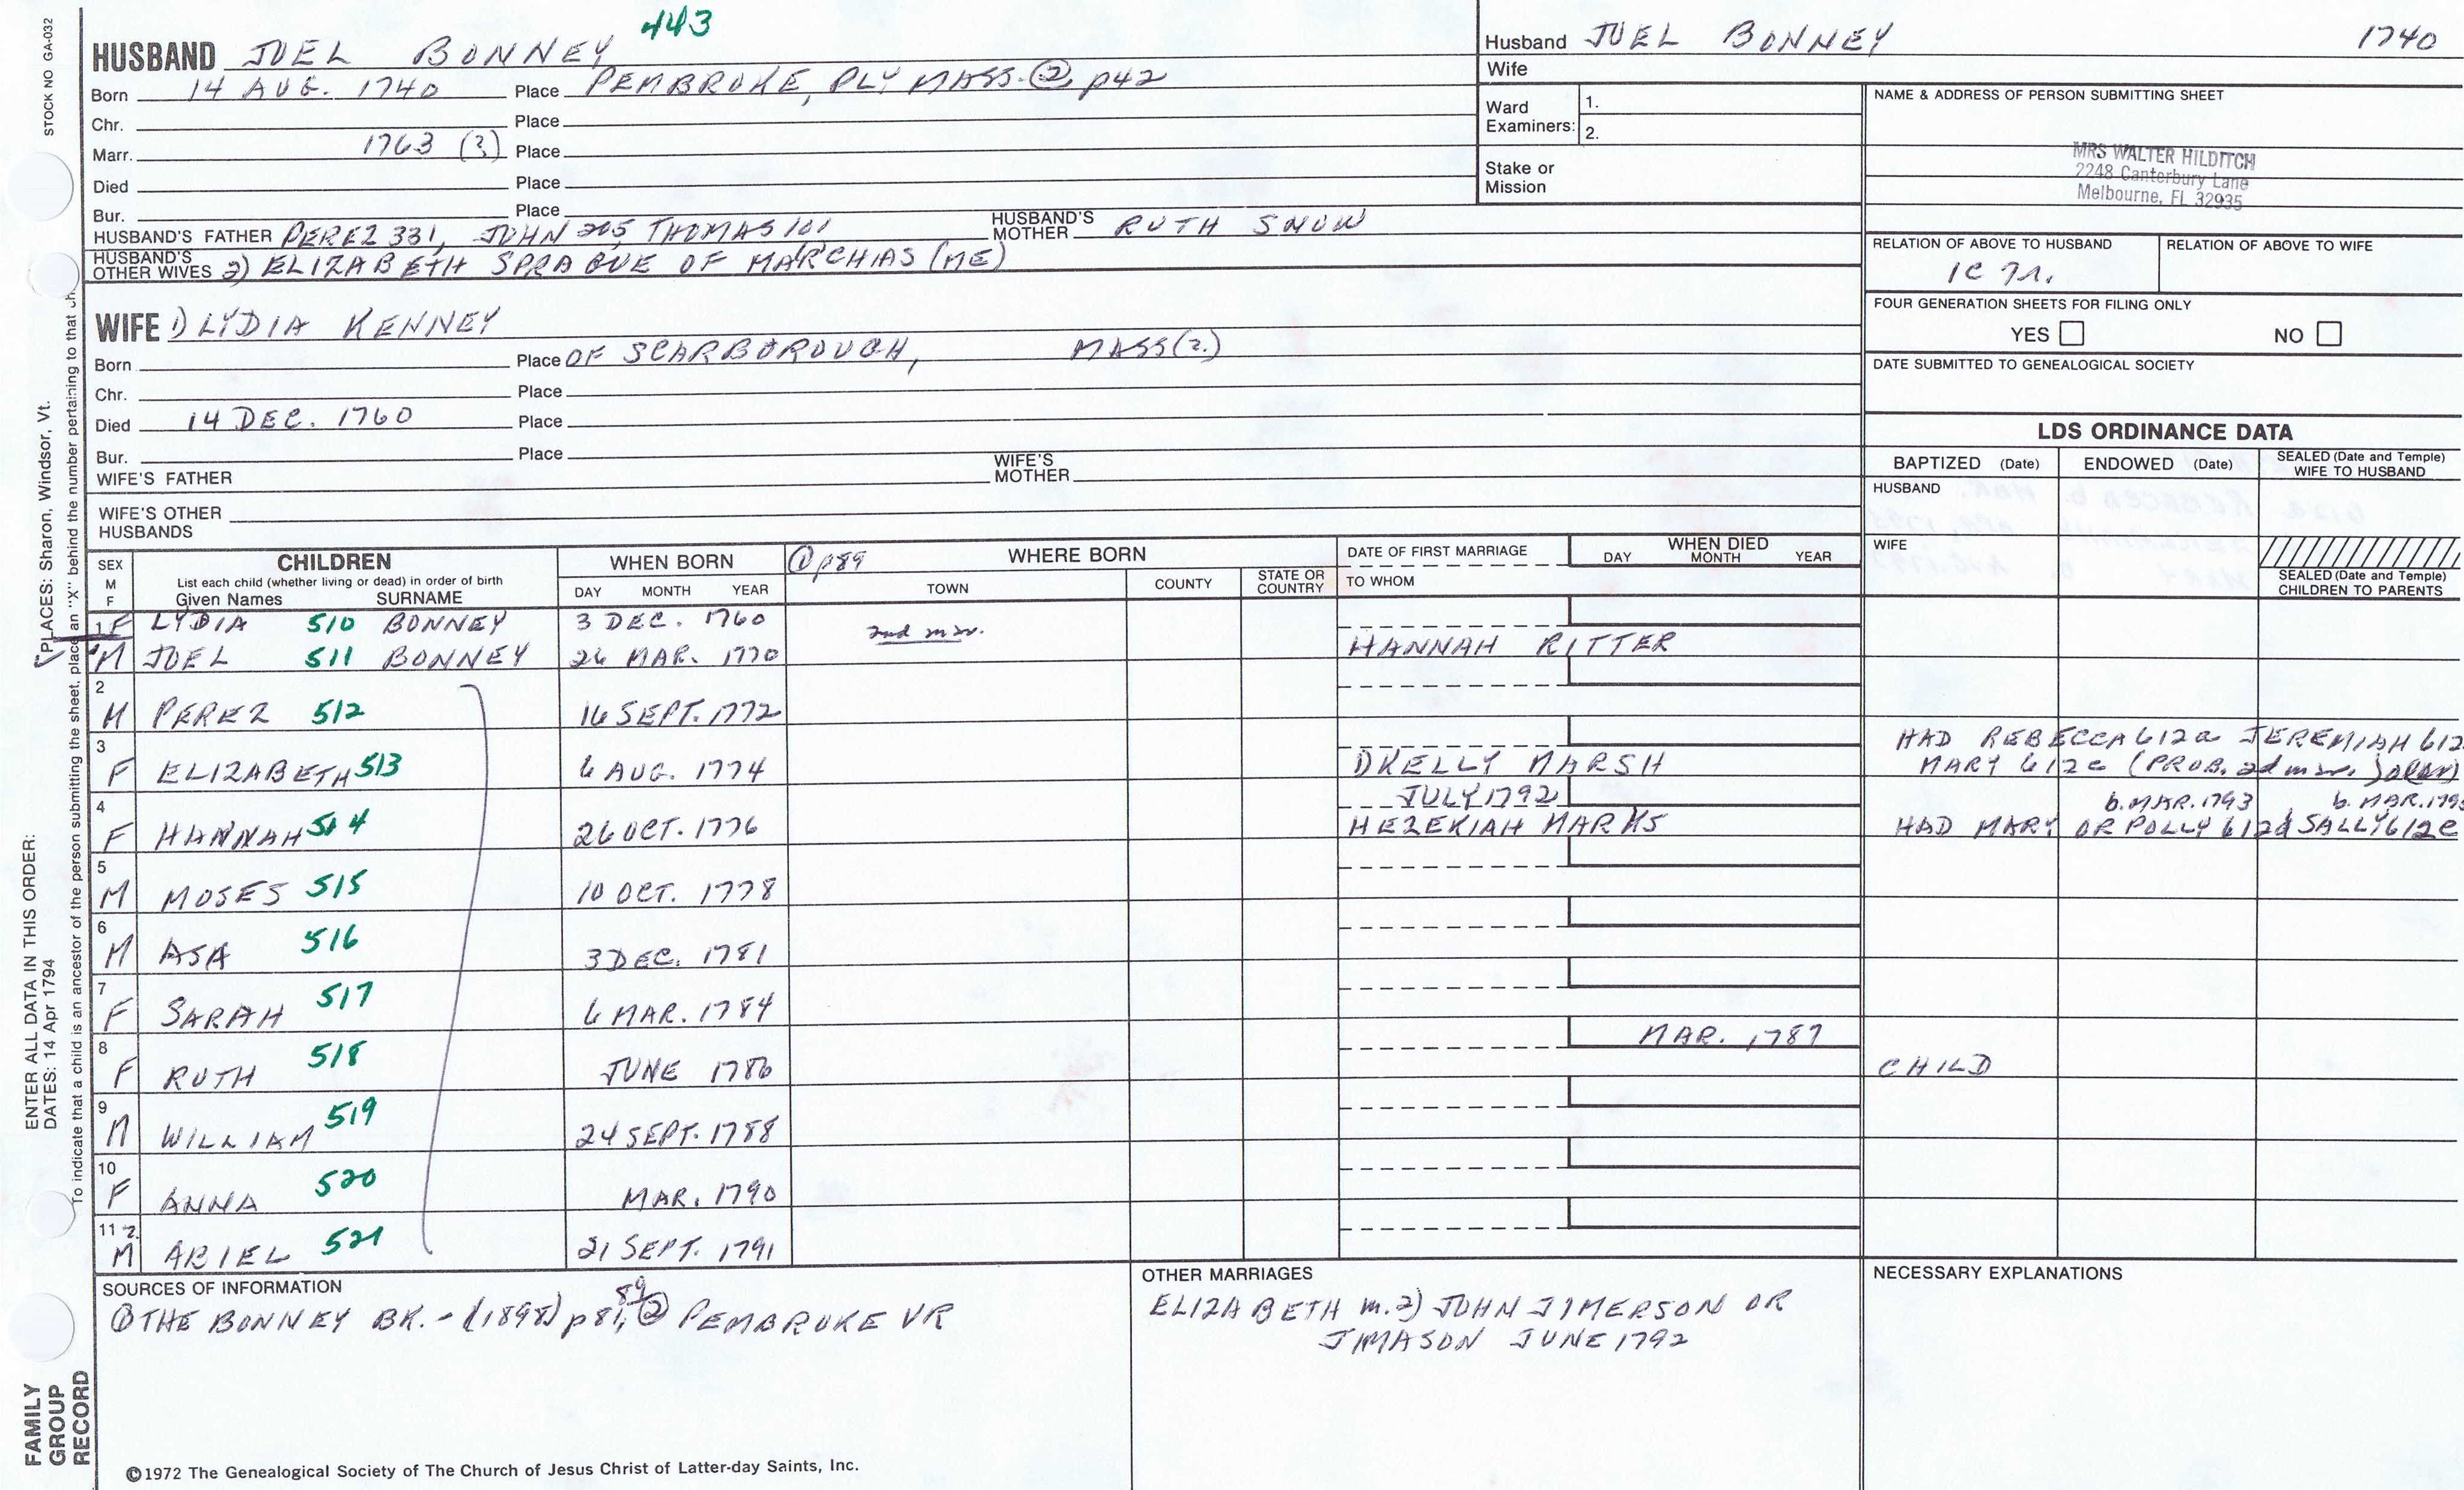 443
HUSBAND JOEL BONNEY
Born 14 AUG. 1740 Place PEMBROKE, PLY MASS. ② p42
Chr. Place
Marr. 1763 (?) Place
Died Place
Bur. Place
HUSBAND'S FATHER PEREZ 331, JOHN 205, THOMAS 101 HUSBAND'S MOTHER RUTH SNOW
HUSBAND'S OTHER WIVES 2) ELIZABETH SPRAGUE OF MARCHIAS (ME)
WIFE 1) LYDIA KENNEY
Born Place OF SCARBOROUGH, MASS(?)
Chr. Place
Died 14 DEC. 1760 Place
Bur. Place
WIFE'S FATHER WIFE'S MOTHER
WIFE'S OTHER HUSBANDS
Husband JOEL BONNEY 1740
Wife
Ward Examiners: 1.
2.
Stake or Mission
NAME & ADDRESS OF PERSON SUBMITTING SHEET
MRS WALTER HILDITCH
2248 Canterbury Lane
Melbourne, FL 32935
RELATION OF ABOVE TO HUSBAND RELATION OF ABOVE TO WIFE
1C
FOUR GENERATION SHEETS FOR FILING ONLY
YES NO
DATE SUBMITTED TO GENEALOGICAL SOCIETY
LDS ORDINANCE DATA
BAPTIZED (Date) ENDOWED (Date) SEALED (Date and Temple) WIFE TO HUSBAND
HUSBAND
WIFE
SEALED (Date and Temple) CHILDREN TO PARENTS
SEX M F CHILDREN WHEN BORN ① p89 WHERE BORN DATE OF FIRST MARRIAGE WHEN DIED
List each child (whether living or dead) in order of birth
Given Names SURNAME DAY MONTH YEAR TOWN COUNTY STATE OR COUNTRY TO WHOM DAY MONTH YEAR
1 F LYDIA 510 BONNEY 3 DEC. 1760
2nd mar.
M JOEL 511 BONNEY 26 MAR. 1770 HANNAH RITTER
2
M PEREZ 512 16 SEPT. 1772
3 HAD REBECCA 612a JEREMIAH 612
F ELIZABETH 513 6 AUG. 1774 1) KELLY MARSH MARY 612c (PROB. 2d mar.
4 JULY 1792 b. MAR. 1793 b. MAR. 179
F HANNAH 514 26 OCT. 1776 HEZEKIAH MARKS HAD MARY OR POLLY 612d SALLY 612e
5
M MOSES 515 10 OCT. 1778
6
M ASA 516 3 DEC. 1781
7
F SARAH 517 6 MAR. 1784
8 MAR. 1787
F RUTH 518 JUNE 1786 CHILD
9
M WILLIAM 519 24 SEPT. 1788
10
F ANNA 520 MAR. 1790
11 2.
M ARIEL 521 21 SEPT. 1791
SOURCES OF INFORMATION
① THE BONNEY BK. - (1898) p81, 89 ② PEMBROKE VR
OTHER MARRIAGES
ELIZABETH m. 2) JOHN JIMERSON OR
JIMASON JUNE 1792
NECESSARY EXPLANATIONS
©1972 The Genealogical Society of The Church of Jesus Christ of Latter-day Saints, Inc.
STOCK NO GA-032
ENTER ALL DATA IN THIS ORDER:
PLACES: Sharon, Windsor, Vt.
DATES: 14 Apr 1794
To indicate that a child is an ancestor of the person submitting the sheet, place an "X" behind the number pertaining to that ch
FAMILY
GROUP
RECORD